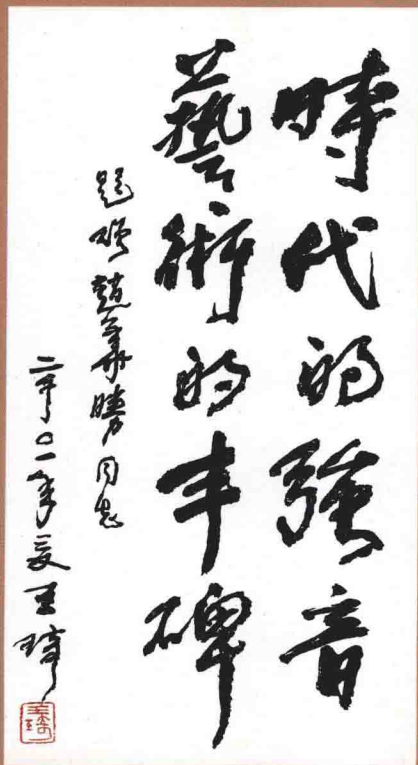 時代的強音
藝術的丰碑
題贈趙華勝同志
二千〇一年夏王琦
王琦